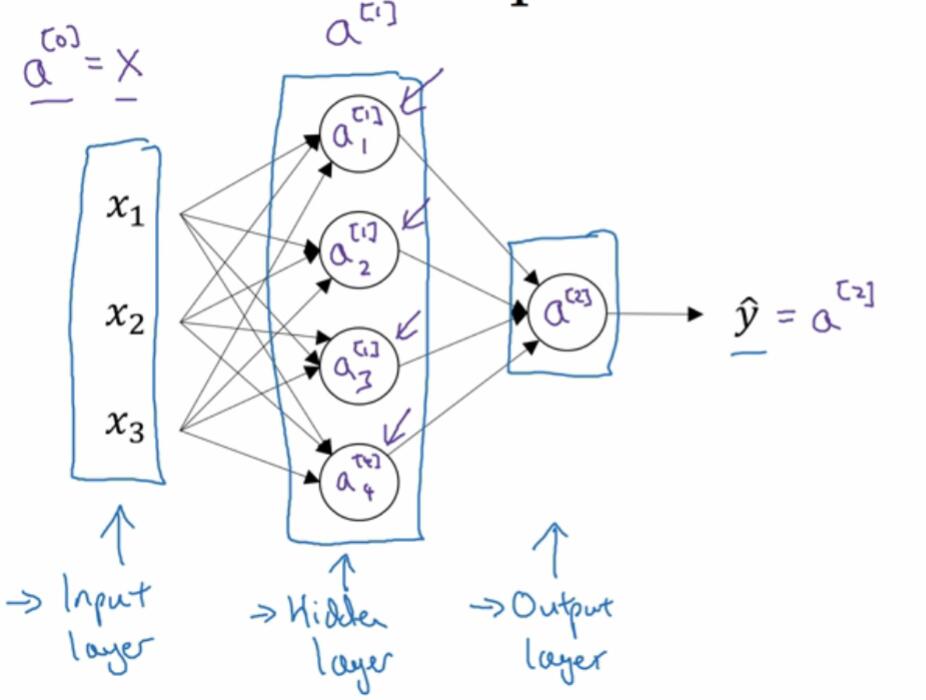 a^[1]
a^[0] = X
x₁
x₂
x₃
a₁^[1]
a₂^[1]
a₃^[1]
a₄^[1]
a^[2]
ŷ = a^[2]
→ Input
layer
→ Hidden
layer
→ Output
layer